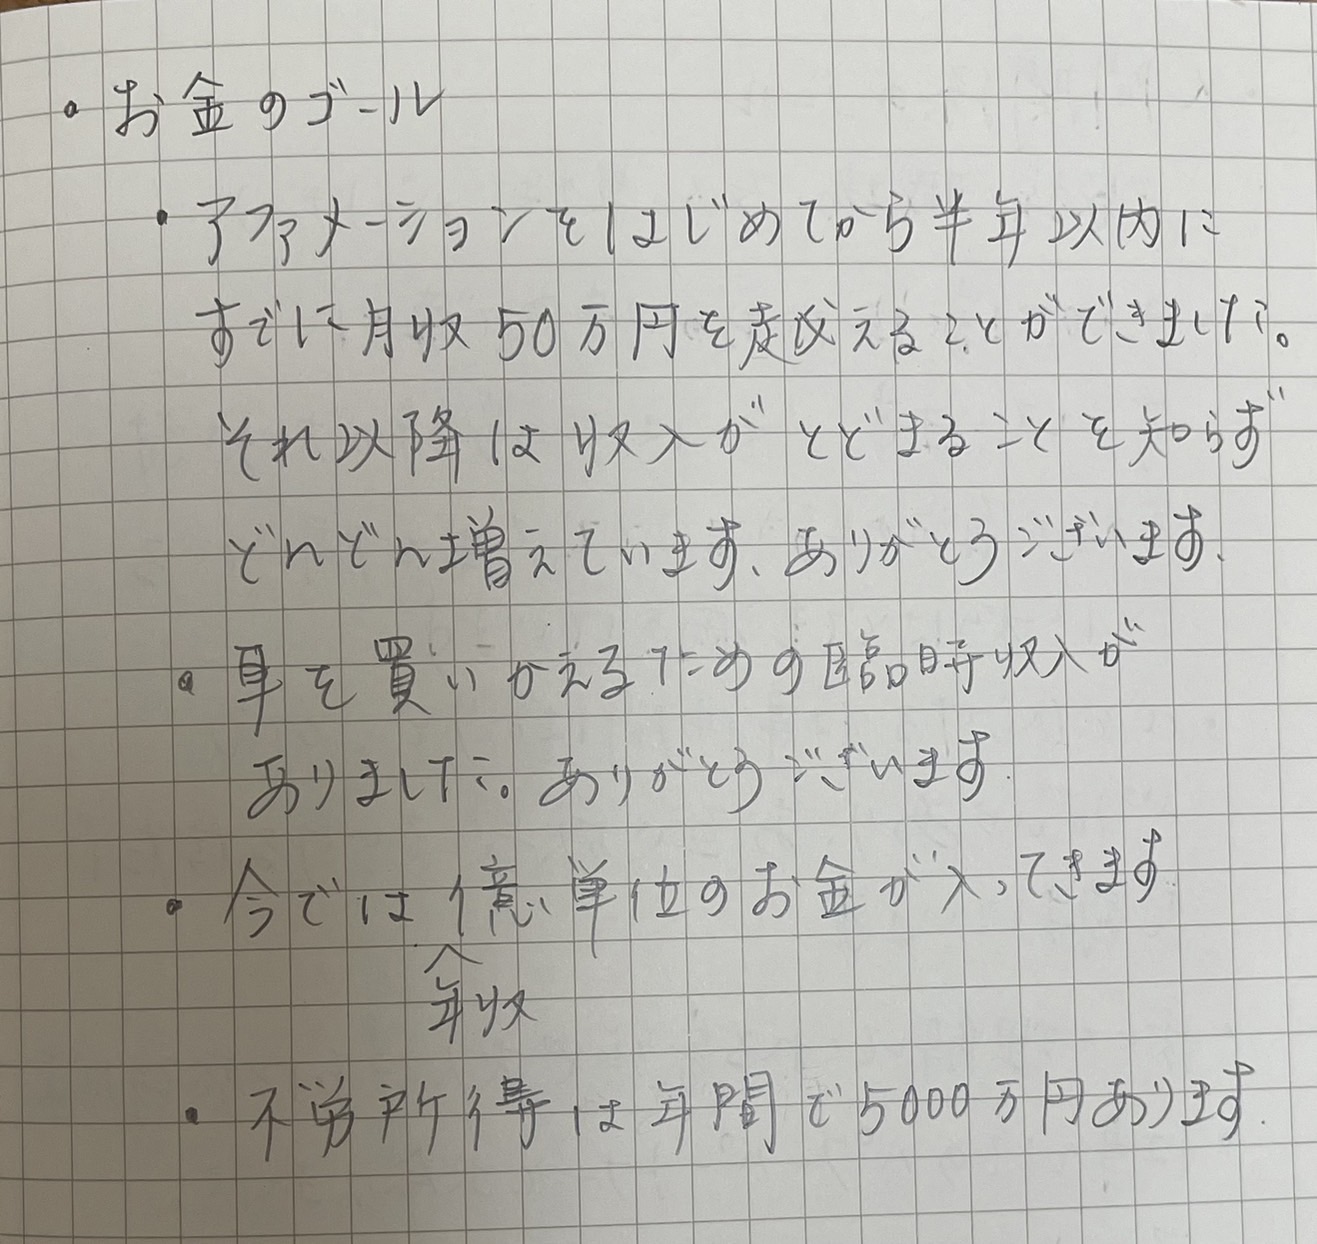 ・お金のゴール
・アファメーションをはじめてから半年以内に
すでに月収50万円を超えることができました。
それ以降は収入がとどまることを知らず
どんどん増えています、ありがとうございます、
・車を買いかえるための臨時収入が
ありました。ありがとうございます
・今では億単位のお金が入ってきます
年収
・不労所得は年間で5000万円あります.